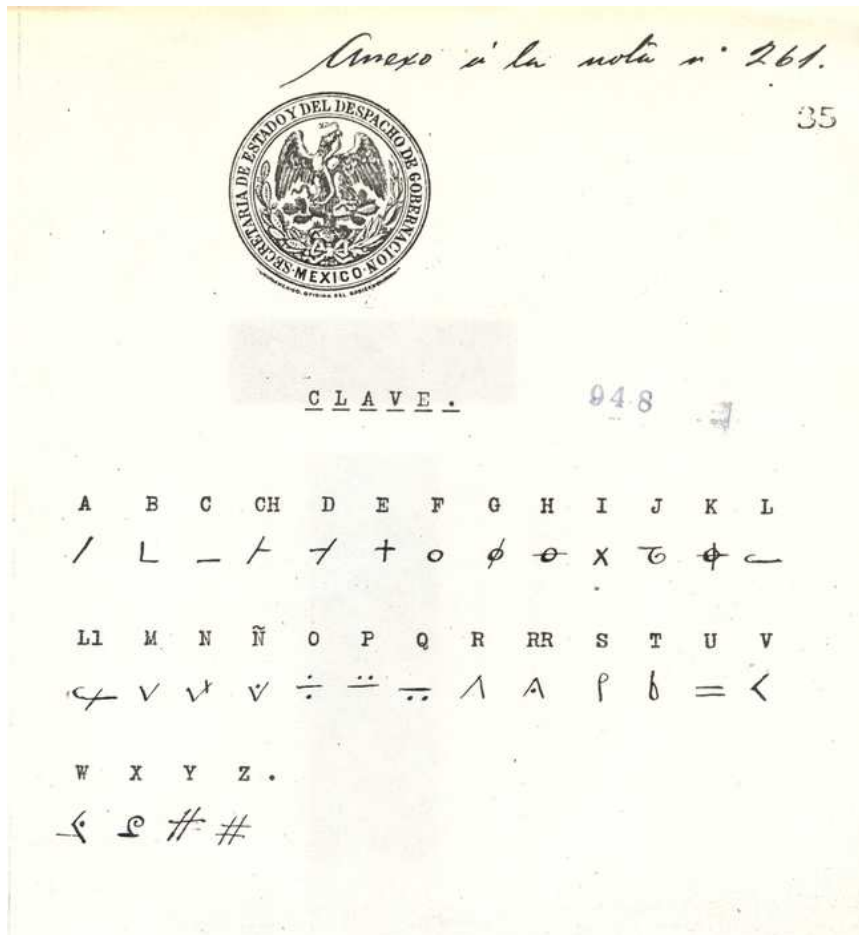 Anexo á la nota nº 261.
35
SECRETARIA DE ESTADO Y DEL DESPACHO DE GOBERNACION
MEXICO
CLAVE.
948
A B C CH D E F G H I J K L
Ll M N Ñ O P Q R RR S T U V
W X Y Z.